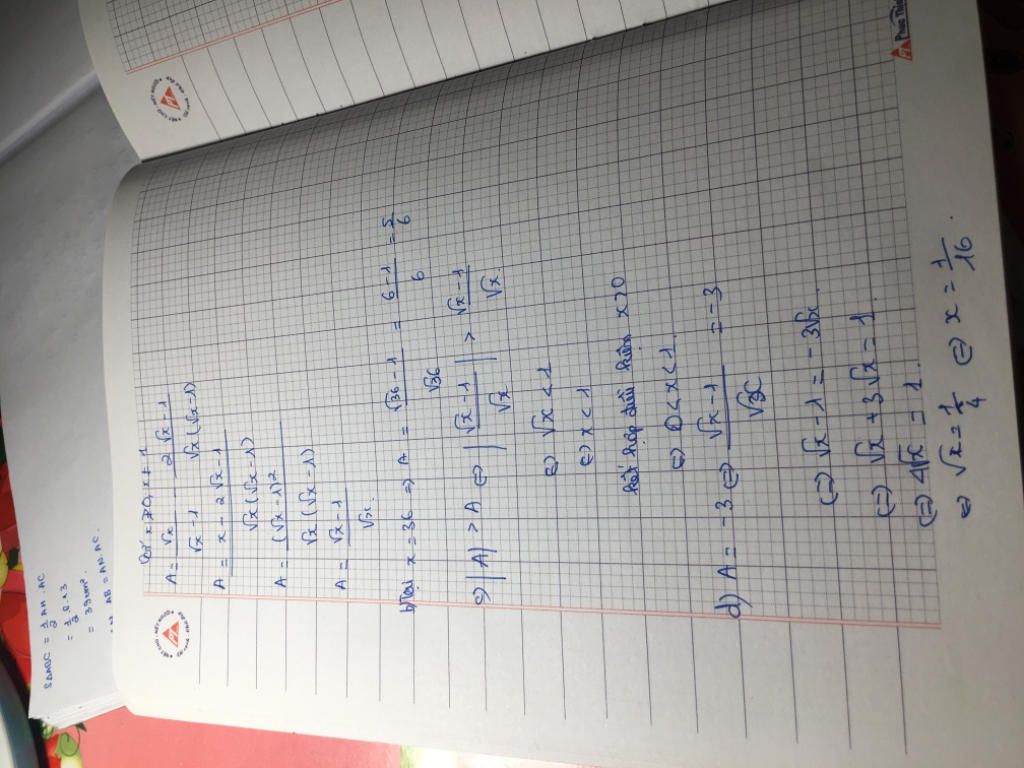 SΔABC = 1/2 AH . AC
= 3
= 39 cm².
AB = AH. AC.
x > 0, x ≠ 1
A = √x/(√x - 1) - (2√x - 1)/(√x(√x - 1))
A = (x - 2√x - 1)/(√x(√x - 1))
A = (√x - 1)²/(√x(√x - 1))
A = (√x - 1)/√x.
b) Tại x = 36 => A = (√36 - 1)/√36 = (6 - 1)/6 = 5/6
c) |A| > A <=> |(√x - 1)/√x| > (√x - 1)/√x
<=> √x < 1
<=> x < 1
kết hợp x > 0
<=> 0 < x < 1
d) A = -3 <=> (√x - 1)/√x = -3
<=> √x - 1 = -3√x
<=> √x + 3√x = 1
<=> 4√x = 1.
<=> √x = 1/4 <=> x = 1/16.